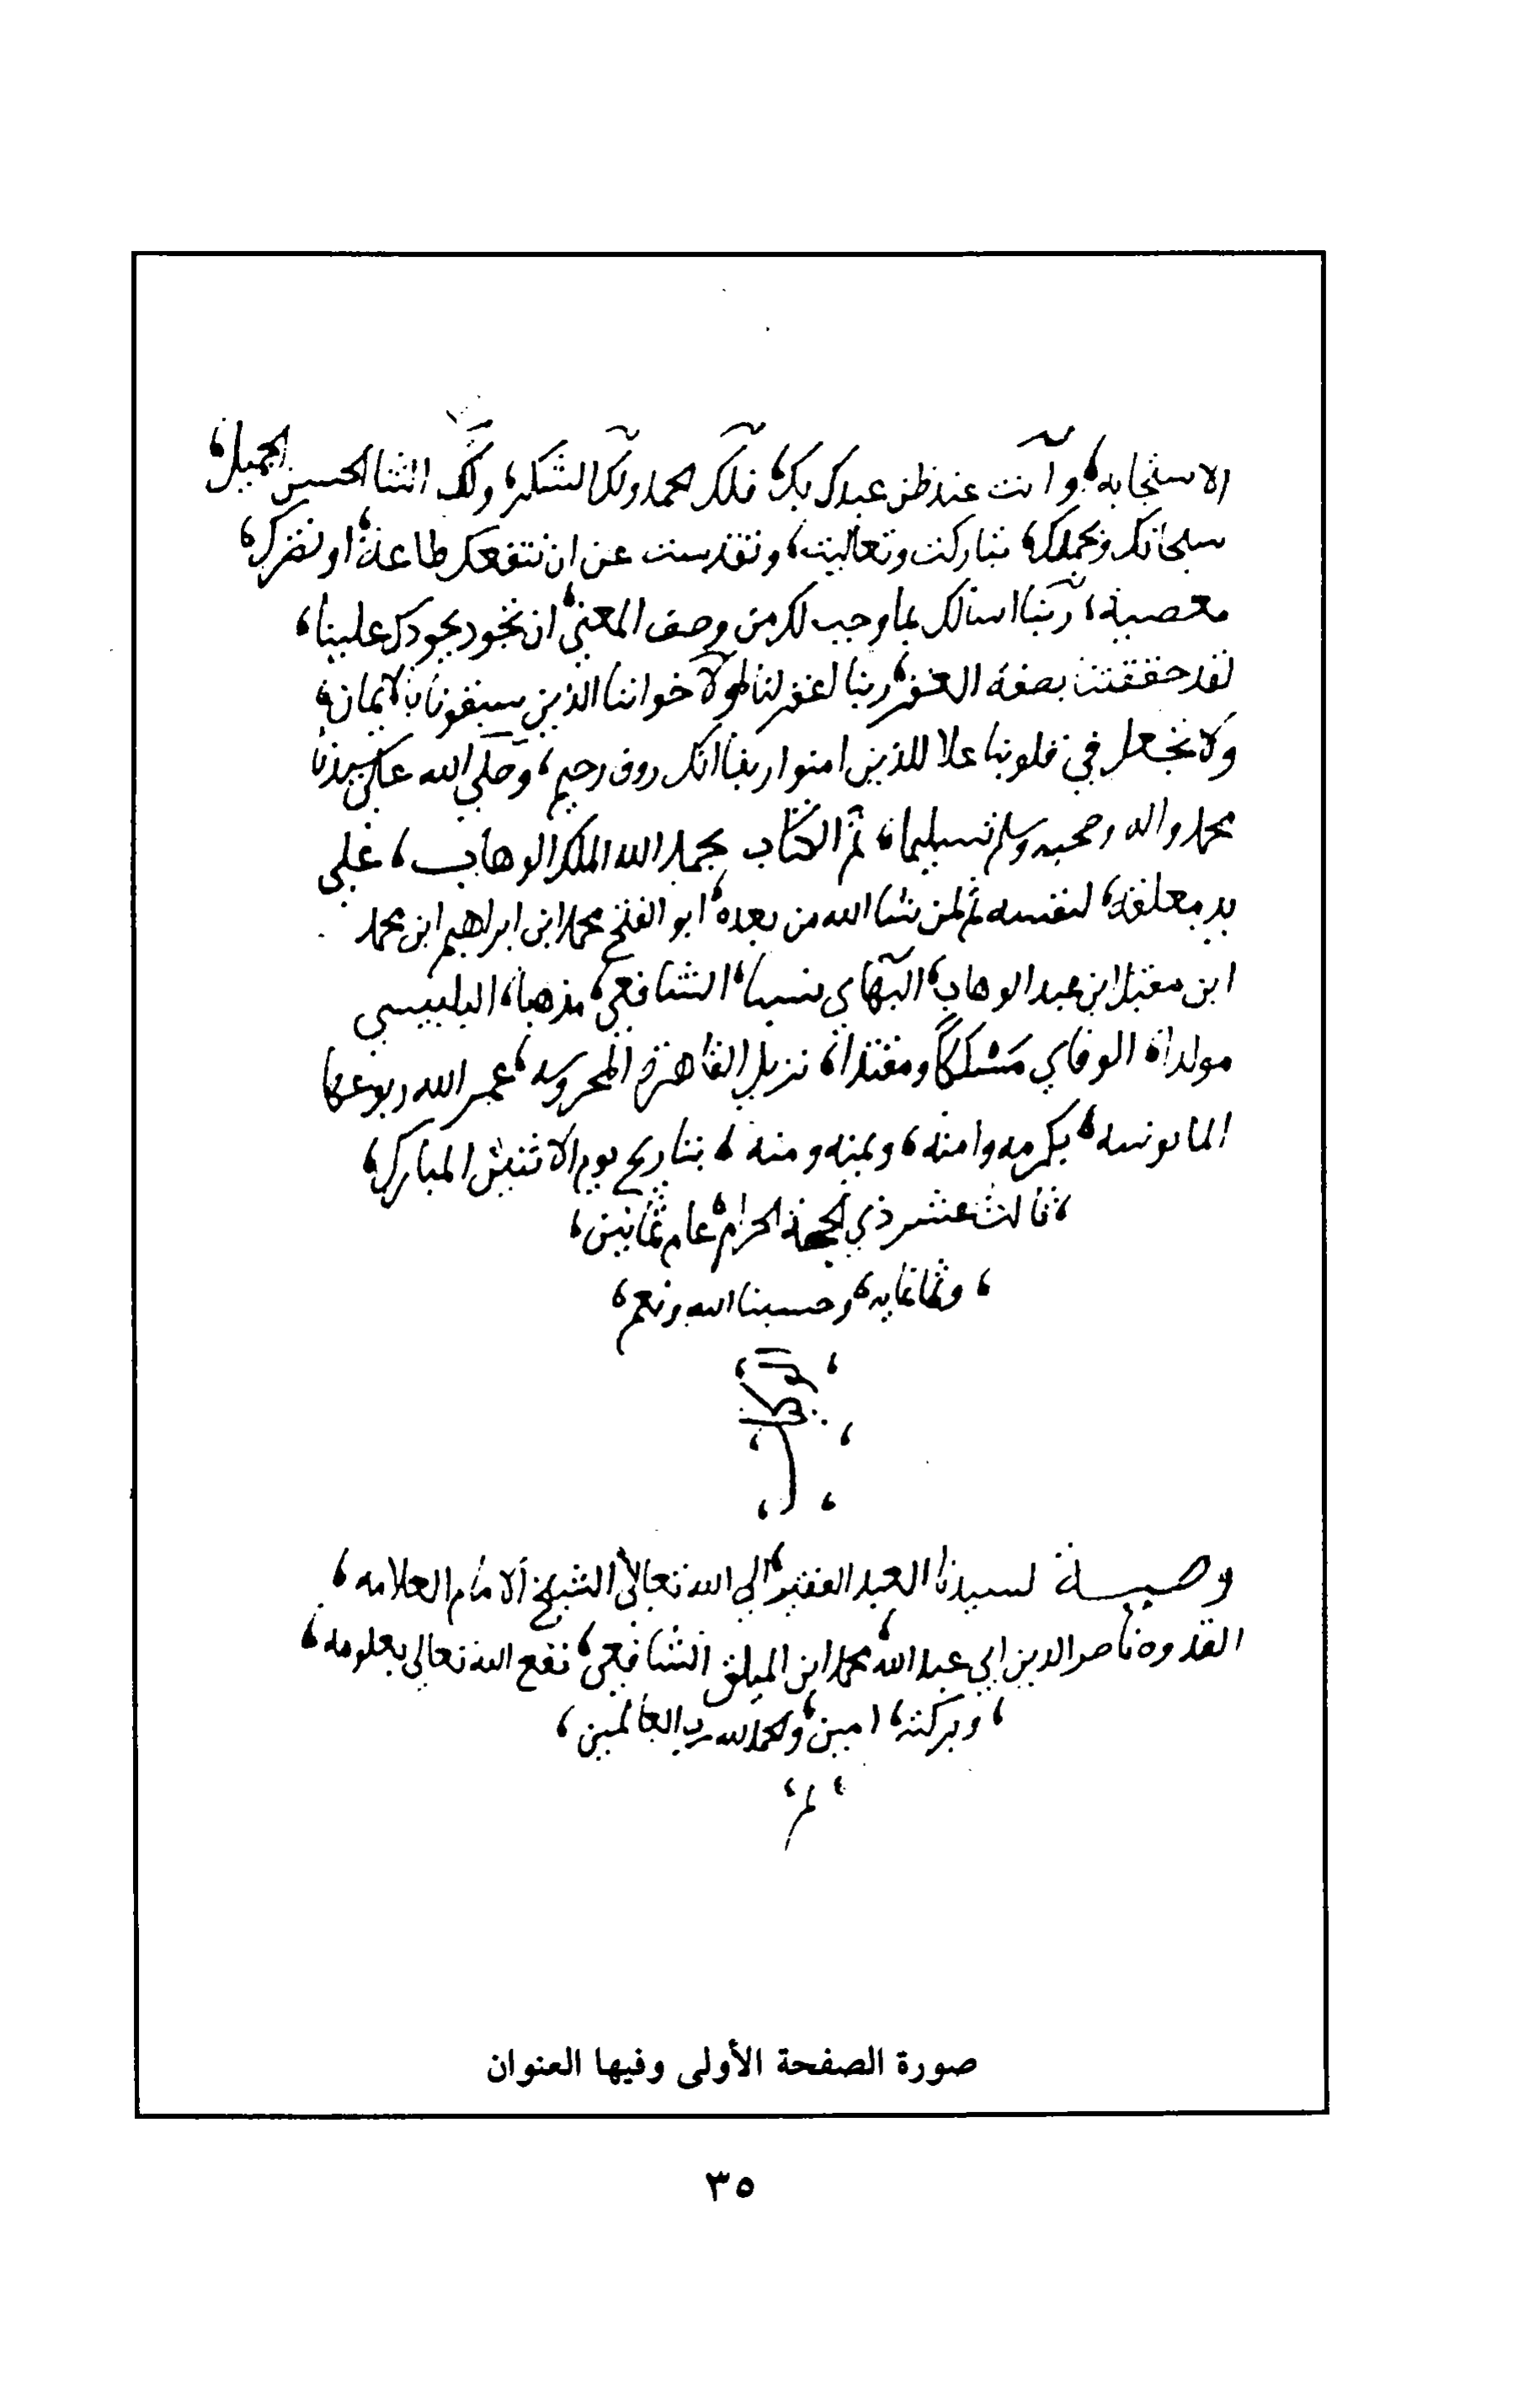 الاستجابه، وأنت عند ظن عبدك بك، فلك الحمد ولك الشكر، ولك الثنا الحسن الجميل،
سبحانك وبحمدك، تباركت وتعاليت، وتقدست عن ان تنفعك طاعة، او تضرك،
معصية، ربنا اسالك بما وجب لك من وصف الغني، ان تجود بجودك علينا،
لقد حققتنا بصفة الفقر، ربنا اغفر لنا ولاخواننا الذين سبقونا بالايمان،
ولا تجعل في قلوبنا غلا للذين امنوا ربنا انك روف رحيم، وصلى الله على سيدنا
محمد واله وصحبه وسلم تسليما، تم الكتاب بحمد الله الملك الوهاب، على
يد معلقه، لنفسه ثم لمن شا الله من بعده، ابو الفتح محمد ابن ابراهيم ابن محمد
ابن مقبل ابن عبد الوهاب، البهاي نسبا، الشافعي، مذهبا، البلبيسي
مولدا، الوفاي مسلكا ومقتدا، نزيل القاهرة المحروسه، عمر الله ربوعها
المانوسه، بكرمه وامنه، وبمنه ومنه، بتاريخ يوم الاثنين المبارك،
، ثالث عشر ذي الحجة الحرام، عام ثمانين،
، وثمانمايه، وحسبنا الله ونعم،
، الوكيل،
وصية لسيدنا العبد الفقير، الى الله تعالى الشيخ الامام العلامه،
القدوه ناصر الدين ابي عبد الله، محمد ابن الميلق الشافعي، نفع الله تعالى بعلومه،
، وبركته، امين، والحمد لله رب العالمين،
صورة الصفحة الأولى وفيها العنوان
٣٥